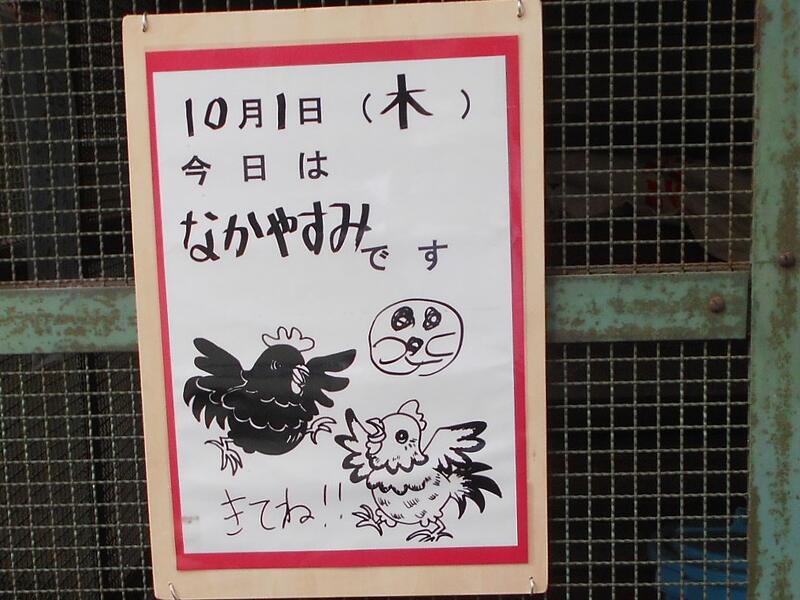 10月1日（木）
今日は
なかやすみです
きてね!!